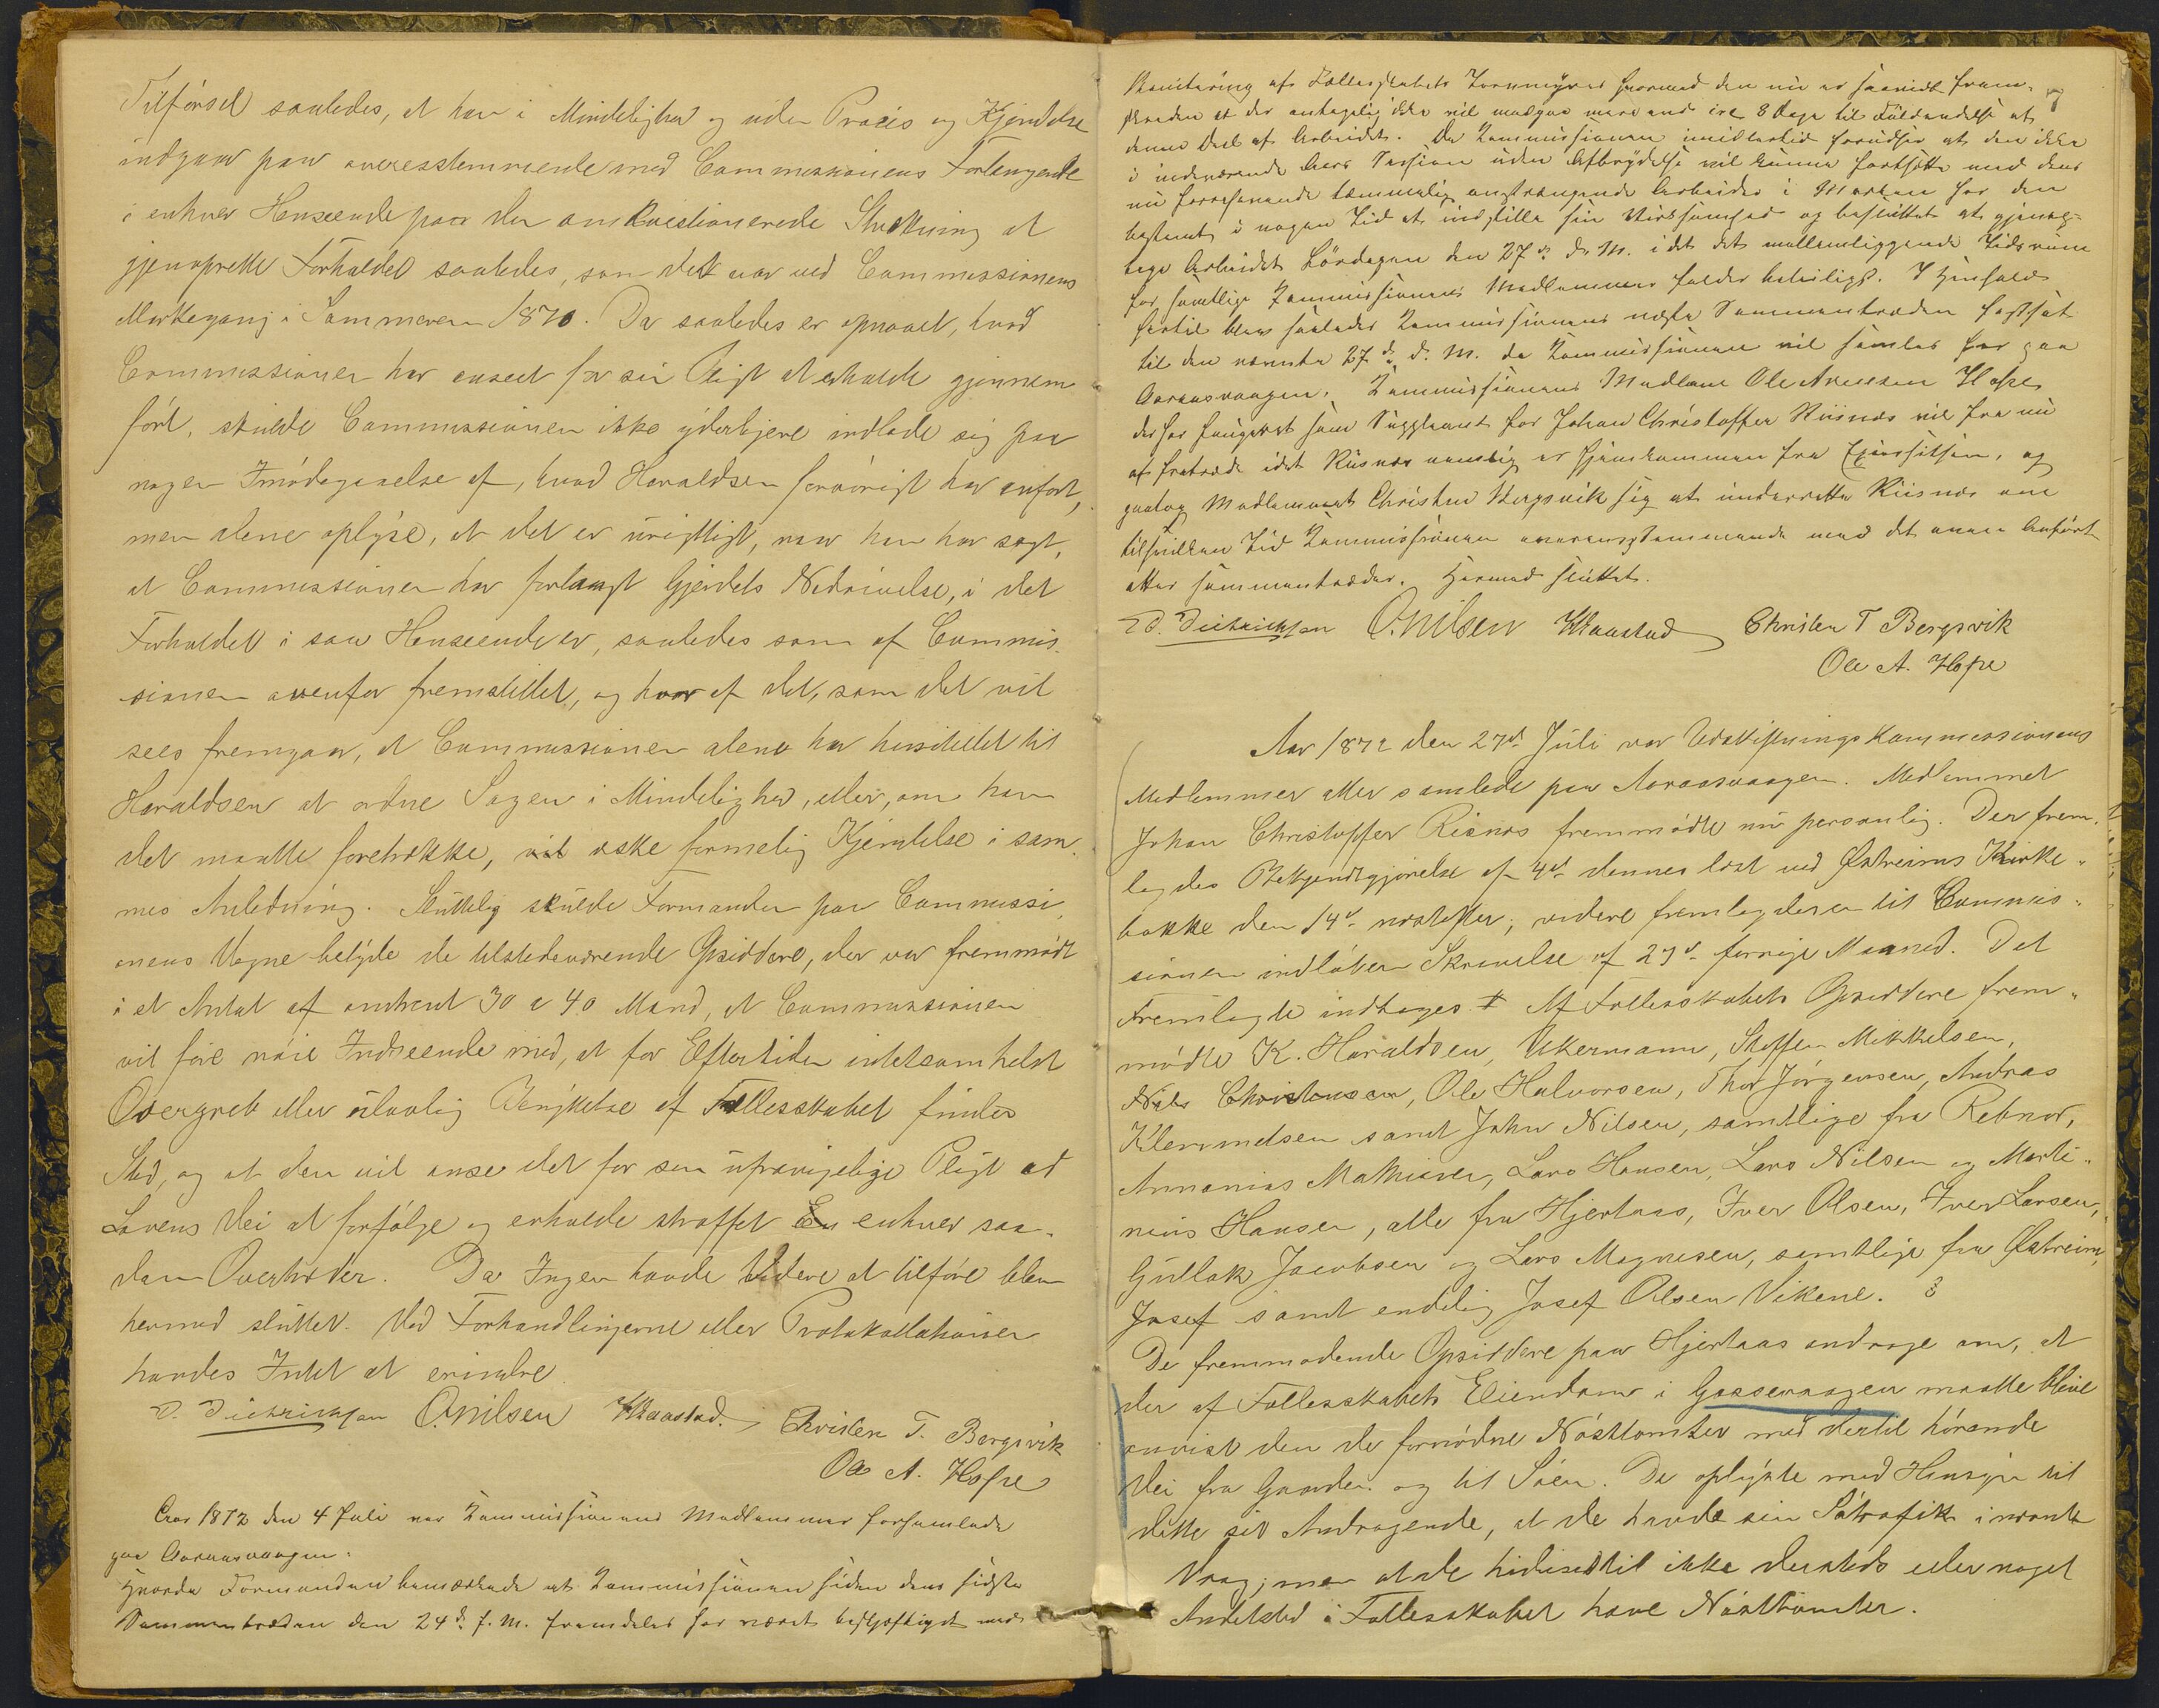 Tilførsel saaledes, at han i Mindelighed og uden Proces og Kjendelse
indgaar paa overensstemmende med Commissionens Forlangende
i enhver Henseende paa den omkvestionerede Strækning at
gjenoprette Forholdet saaledes, som det var ved Commissionens
Markegang i Sommeren 1870. Da saaledes er opnaaet, hvad
Commissionen har anseet for sin Pligt at erholde gjennem-
ført, skulde Commissionen ikke yderligere indlade sig paa
nogen Imødegaaelse af, hvad Haraldsen forøvrigt har anført,
men alene oplyse, at det er urigtigt, naar han har sagt,
at Commissionen har forlangt Gjerdets Nedrivelse, i det
Forholdet i saa Henseende er, saaledes som af Commis-
sionen ovenfor fremstillet, og hvor af det, som det vil
sees fremgaar, at Commissionen alene har henstillet til
Haraldsen at ordne Sagen i Mindelighed, eller, om han
det maatte foretrække, at æske formelig Kjendelse i sam-
mes Anledning. Sluttelig skulde Formanden paa Commissi-
onens Vegne betyde de tilstedeværende Opsiddere, der var fremmødt
i et Antal af omtrent 30 a 40 Mand, at Commissionen
vil føre nøie Indseende med, at for Eftertiden intetsomhelst
Overgreb eller ulovlig Benyttelse af Fællesskabet finder
Sted, og at den vil anse det for sin ufravigelige Pligt ad
Lovens Vei at forfølge og erholde straffet enhver saa-
dan Overtræder. Da Ingen havde Videre at tilføre blev
hermed sluttet. Ved Forhandlingerne eller Protokollationen
havdes Intet at erindre.
D. Diedrichsen O. Nilsen Kaastad. Christen T. Bergsvik
Ole A. Hope
Aar 1872 den 4 Juli var Kommissionens Medlemmer forsamlede
paa Aaraasvaagen.
Hvorda Formanden bemærkede at Kommissionen siden dens sidste
Sammentræden den 24d f. M. fremdeles har været beskjæftiget med
Bonitering af Fællesskabets hvormed den nu er saavidt frem-
skreden at der antagelig ikke vil medgaa mere end ca 8 Dage til Fuldendelse af
denne Deel af Arbeidet. Da Kommissionen imidlertid forudser at den ikke
i indeværende Aars Session uden Afbrydelse vil kunne fortsætte med dens
nu forestaaende temmelig anstrængende Arbeider i Marken har den
bestemt i nogen Tid at indstille sin Virksomhed og besluttet at gjenop-
tage Arbeidet Lørdagen den 27de d. M. i det det mellemliggende Tidsrum
for samtlige Kommissionens Medlemmer falder beleiligst. I Henhold
hertil blev saaledes Kommissionens næste Sammentræden fastsat
til den nævnte 27de d. M. da Kommissionen vil samles her paa
Aaraasvaagen. Kommissionens Medlem Ole Andersen Hope
der har fungeret som Suppleant for Johan Christoffer Risnes vil fra nu
af fratræde idet Risnes nemlig er hjemkommen fra Expeditsen, og
paatog Medlemmet Christen Bergsvik sig at underrette Risnes om
tilhvilken Tid Kommissionen overensstemmende med det oven Anførte
atter sammentræder. Hermed sluttet.
D. Diedrichsen O. Nilsen Kaastad Christen T Bergsvik
Ole A. Hope
Aar 1872 den 27d Juli var Udskiftningskommissionens
Medlemmer atter samlede paa Aaraasvaagen. Medlemmet
Johan Christoffer Risnes fremmødte nu personlig. Der frem-
lagdes Bekjendtgjørelse af 4d dennes læst ved Østreims Kirke-
bakke den 14d næstefter, videre fremlagdes en til Commis-
sionen indløben Skrivelse af 27d forrige Maaned. Det
Fremlagte indtages. Af Fællesskabets Opsiddere frem-
mødte K. Haraldsen, Akermann, Steffen Mikkelsen,
Nils Christensen, Ole Halvorsen, Thor Jørgensen, Andreas
Klemmetsen samt John Nilsen, samtlige fra Rebnor,
Annanias Mathiesen, Lars Hansen, Lars Nilsen og Marti-
nius Hansen, alle fra Hjertaas, Iver Olsen, Iver Larsen,
Gullak Jacobsen og Lars Magnesen, samtlige fra Østreim,
Josef samt endelig Josef Olsen Vikene.
De fremmødende Opsiddere paa Hjertaas androge om, at
der af Fællesskabets Eiendom i Gaasevaagen maatte blive
anvist dem de fornødne Nøsttomter med dertil hørende
Vei fra Gaarden og til Søen. De oplyste med Hensyn til
dette sit Andragende, at de havde sin Søtrafik i nævnte
Vaag, men at de hidindtil ikke dersteds eller noget
Andetsted i Fællesskabet have Nøsttomter.